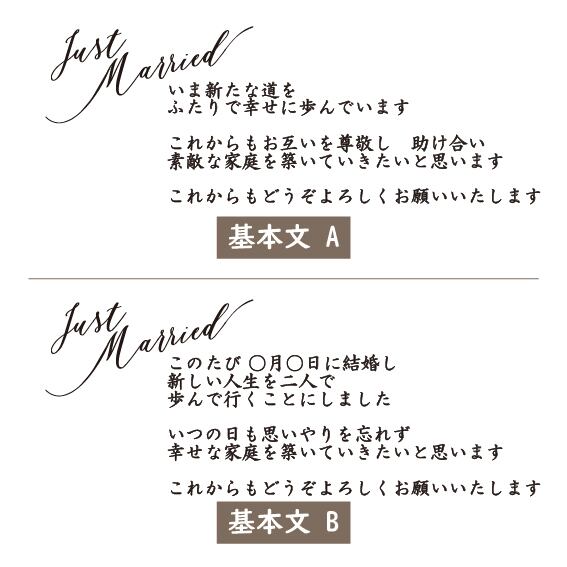 Just
Married
いま新たな道を
ふたりで幸せに歩んでいます
これからもお互いを尊敬し　助け合い
素敵な家庭を築いていきたいと思います
これからもどうぞよろしくお願いいたします
基本文 A
Just
Married
このたび 〇月〇日に結婚し
新しい人生を二人で
歩んで行くことにしました
いつの日も思いやりを忘れず
幸せな家庭を築いていきたいと思います
これからもどうぞよろしくお願いいたします
基本文 B